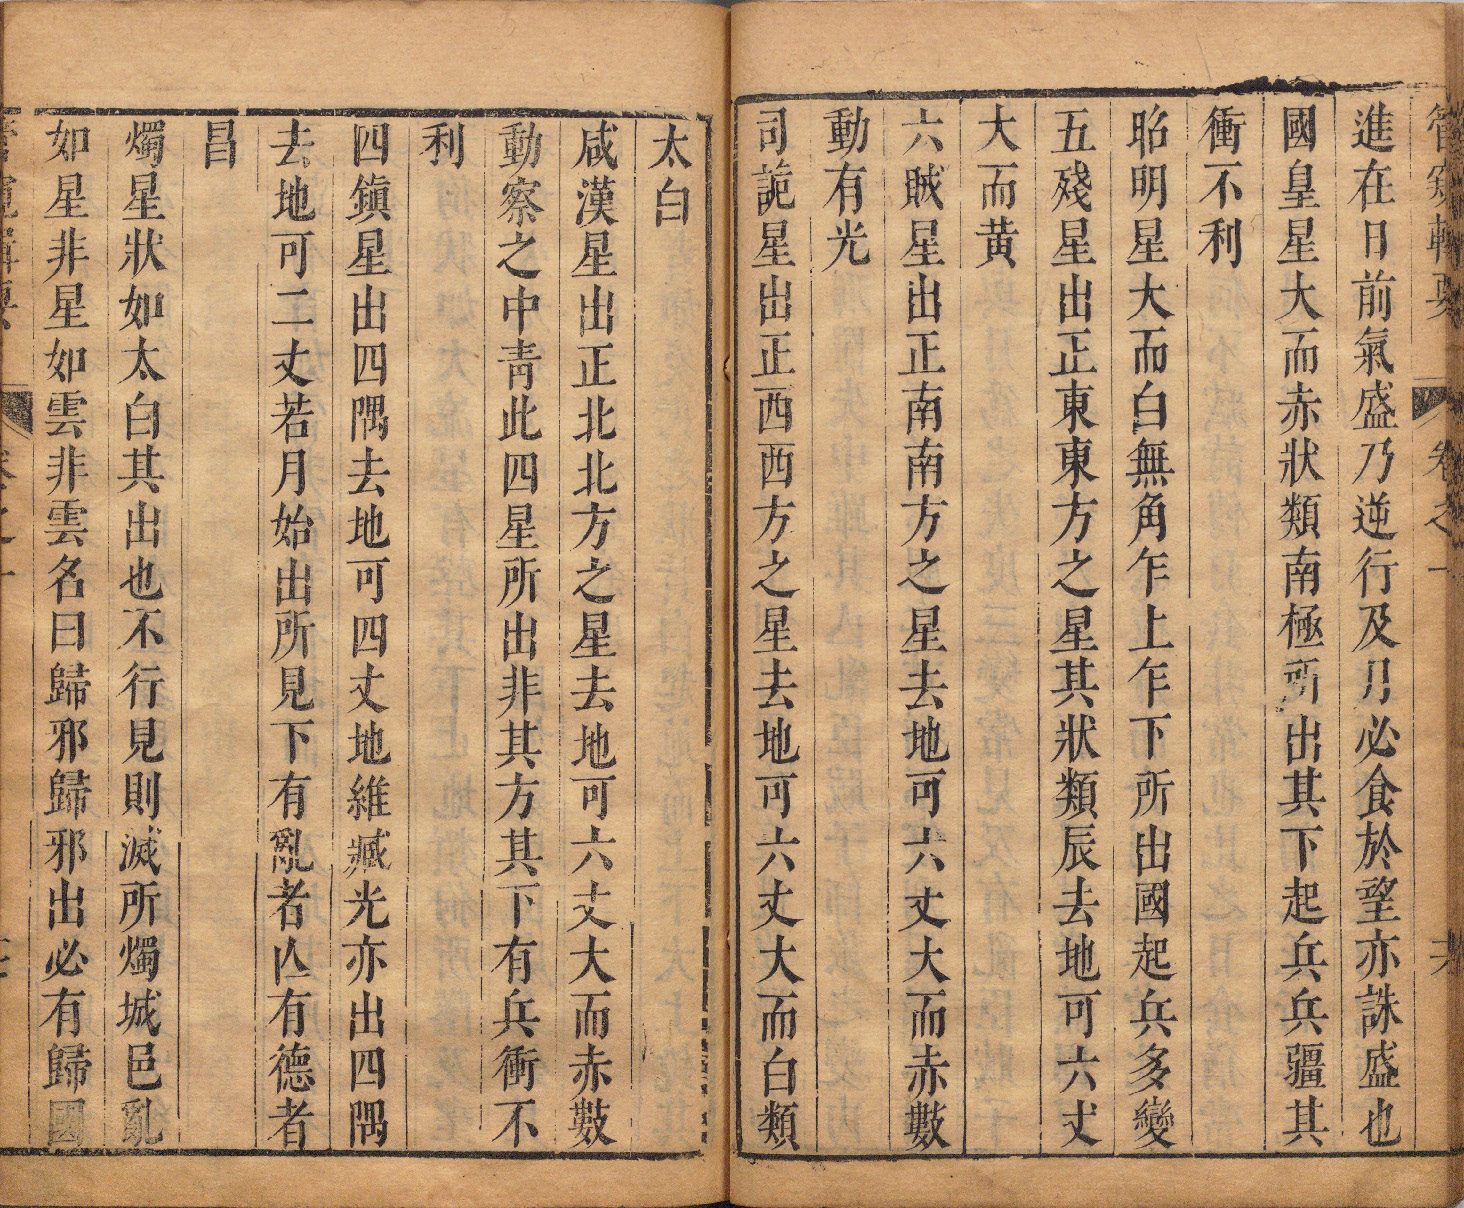 管窺輯要 卷之一 十六
進在日前氣盛乃逆行及月必食於望亦誅盛也
國皇星大而赤狀類南極所出其下起兵兵彊其
衝不利
昭明星大而白無角乍上乍下所出國起兵多變
五殘星出正東東方之星其狀類辰去地可六丈
大而黃
六賊星出正南南方之星去地可六丈大而赤數
動有光
司詭星出正西西方之星去地可六丈大而白類
太白
咸漢星出正北北方之星去地可六丈大而赤數
動察之中青此四星所出非其方其下有兵衝不
利
四鎮星出四隅去地可四丈地維臧光亦出四隅
去地可二丈若月始出所見下有亂者亾有德者
昌
燭星狀如太白其出也不行見則滅所燭城邑亂
如星非星如雲非雲名曰歸邪歸邪出必有歸國